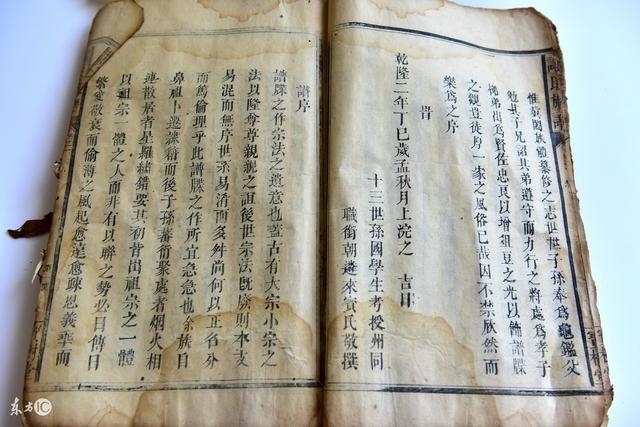 惟我闔族體纂修之志世世子孫奉爲龜鑑父
勉其子兄詔其弟遵守而力行之將處爲孝子
悌弟出爲賢佐忠良以增俎豆之光以飾譜牒
之觀豈徒序一家之風俗已哉因不禁欣然而
樂爲之序
旹
乾隆二年丁巳歲孟秋月上浣之 吉日
十三世孫國學生考授州同
職銜朝遴來賓氏敬撰
譜序
譜牒之作宗法之遺意也蓋古有大宗小宗之
法以隆尊尊親親之誼後世宗法旣廢則本支
易混而無序世系易淆而多舛尚何以正名分
而篤倫理乎此譜牒之作所宜急急也余族自
鼻祖卜遷
籍而後子孫蕃衍聚處者烟火相
連散居者星羅繡錯要其初皆出祖宗之一體
以祖宗一體之人而非有以聯之勢必日傳日
繁愛敬衰而偷薄之風起愈遠愈疎恩義乖而
东方IC